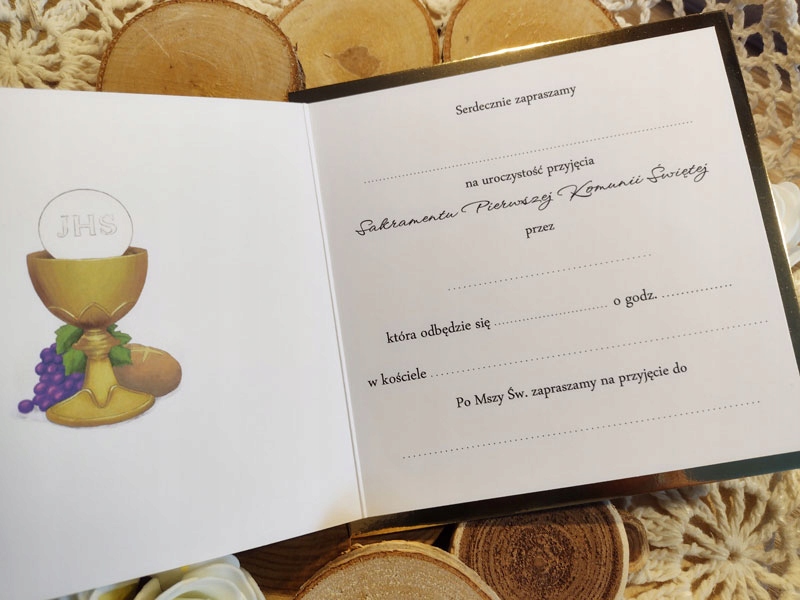 JHS
Serdecznie zapraszamy
................................................................
na uroczystość przyjęcia
Sakramentu Pierwszej Komunii Świętej
przez
........................................
która odbędzie się ...................... o godz. ..............
w kościele ................................................................
Po Mszy Św. zapraszamy na przyjęcie do
................................................................